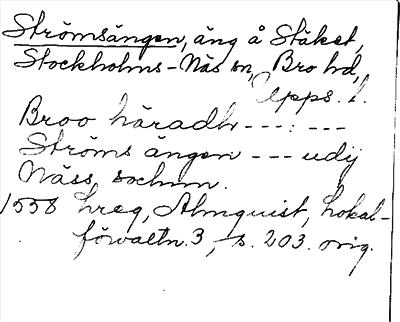 Strömsängen, äng å Stäket,
Stockholms-Näs sn, Bro hd,
Upps. l.
Broo häradh ---:---
Ströms ängen --- udij
Näss sochnn.
1558 hreg, Almquist, Lokal-
förvaltn. 3, s. 203. orig.